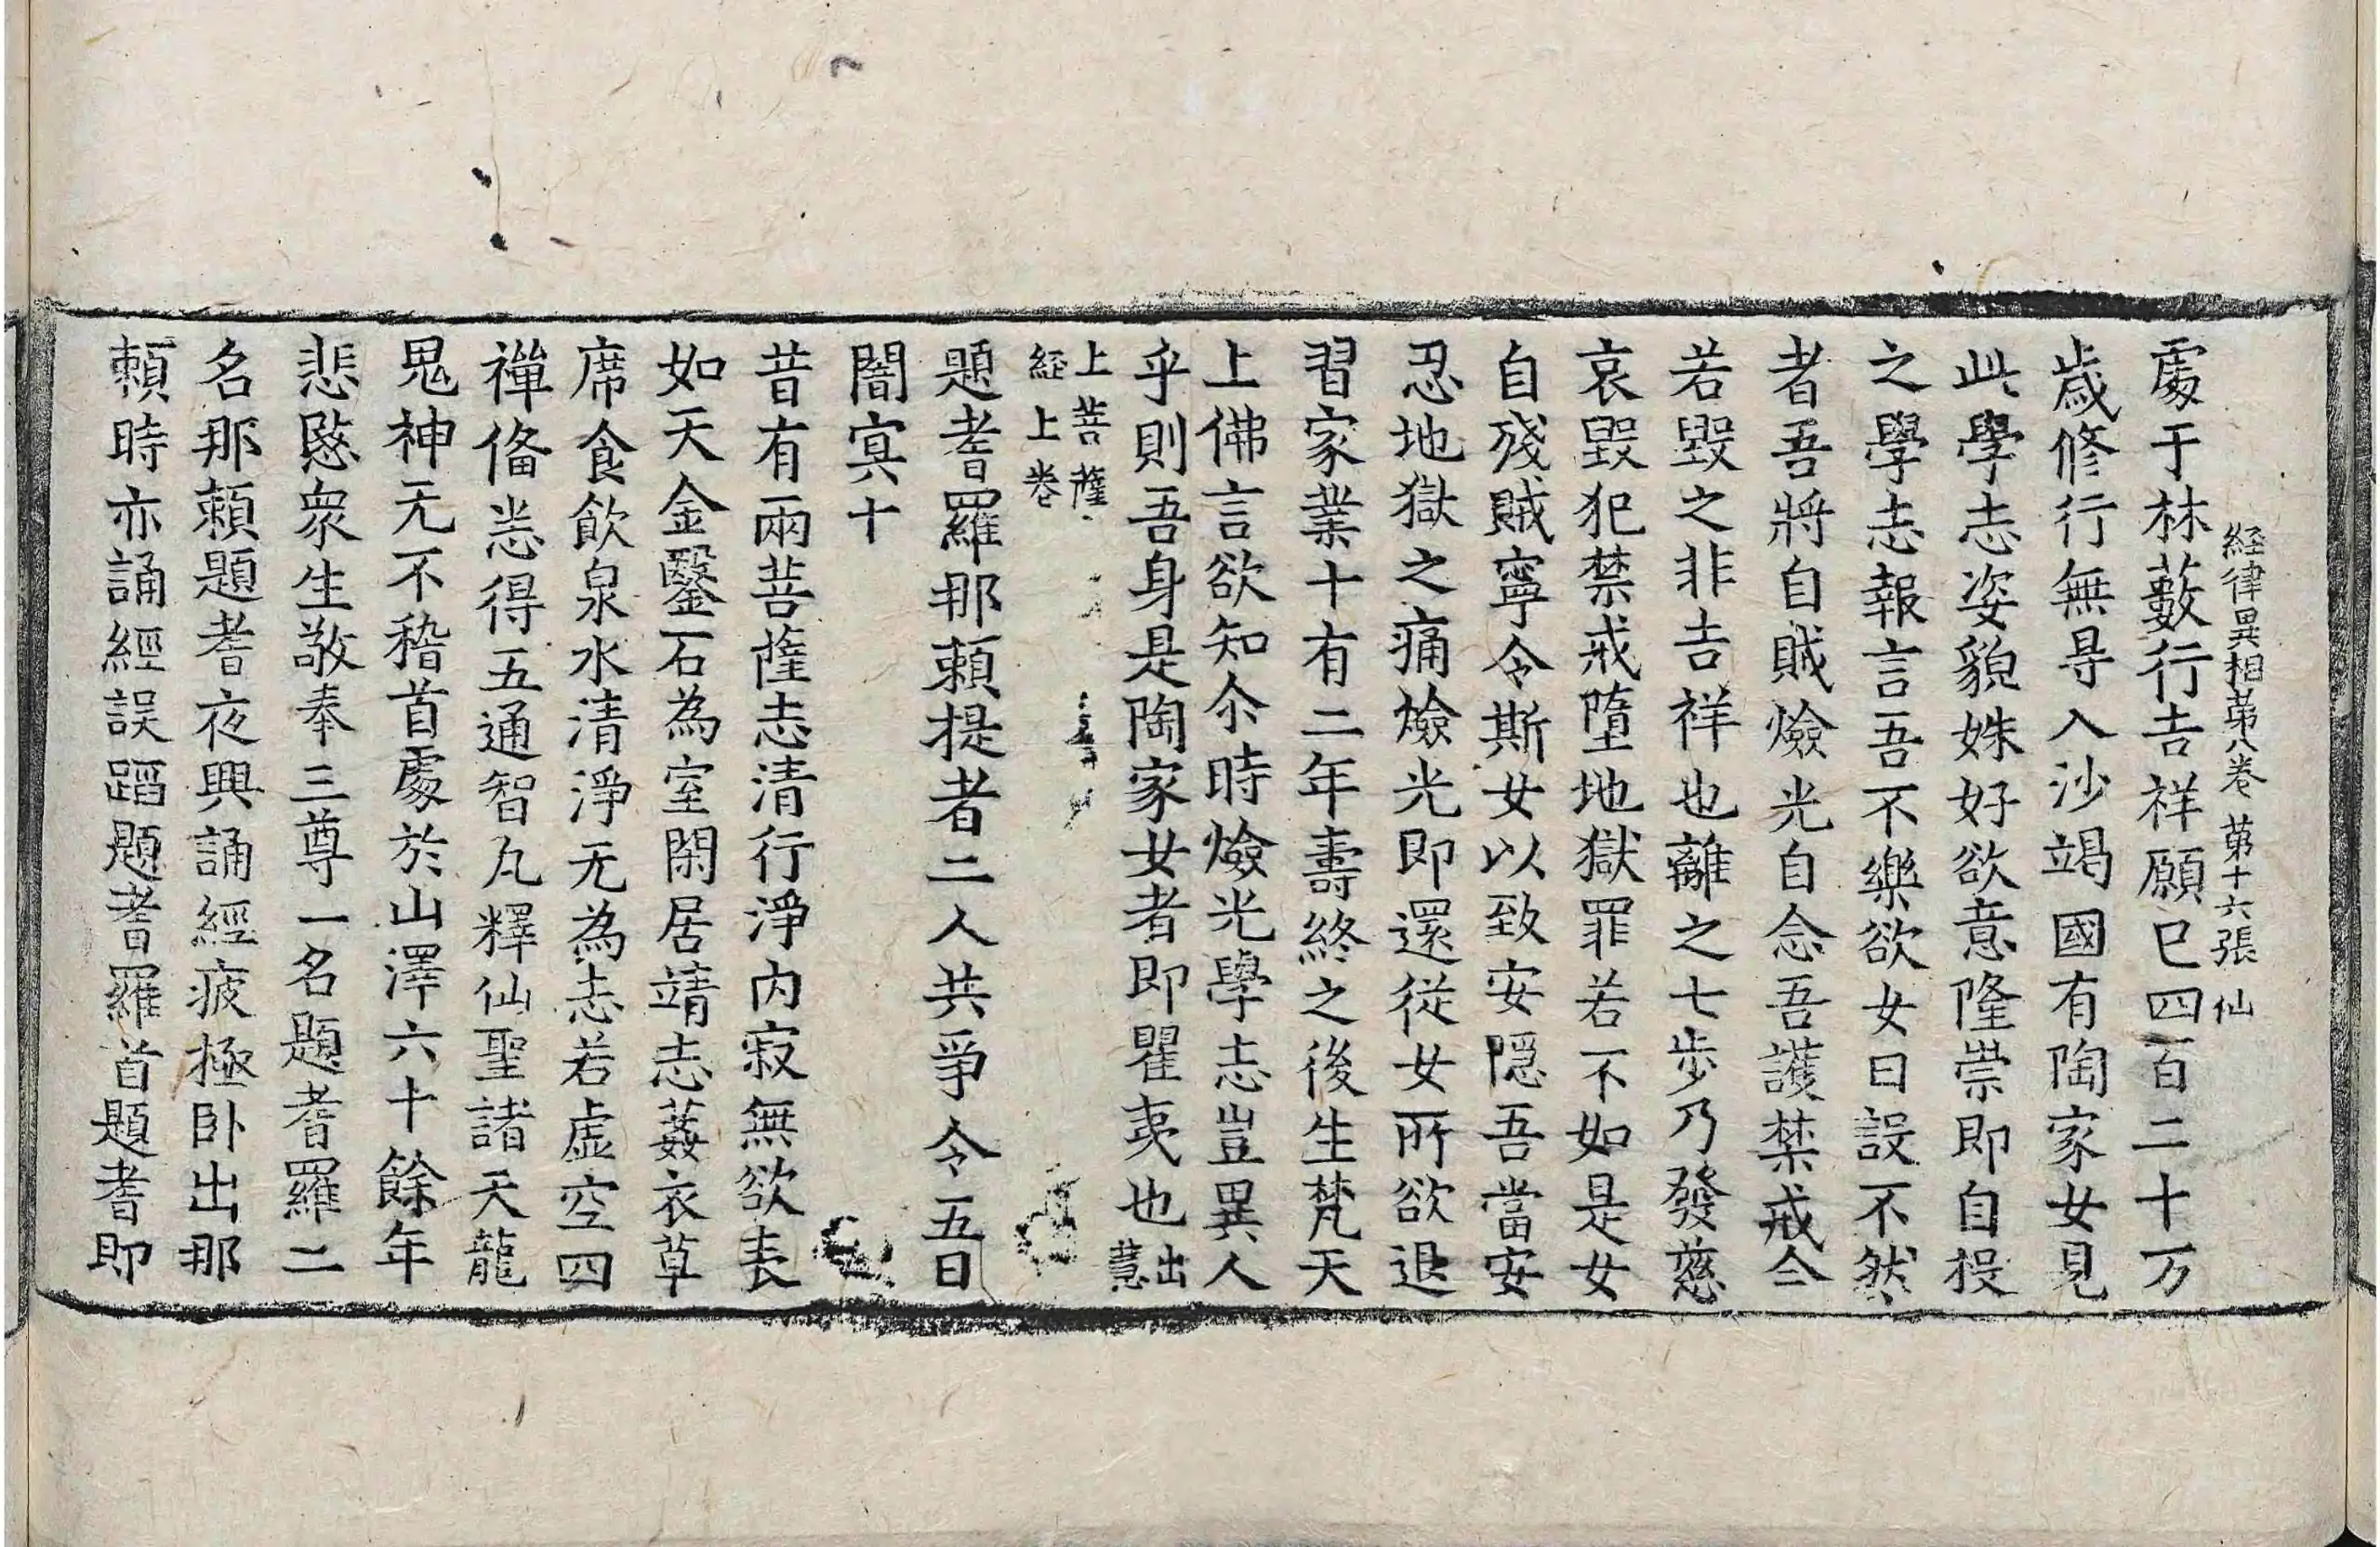 経律異相苐八卷 苐十六張 仙
處于林藪行吉祥願已四百二十万
歲修行無㝵入沙竭國有陶家女見
此學志姿貌姝好欲意隆崇即自投
之學志報言吾不樂欲女曰設不然
者吾將自賊燄光自念吾護禁戒今
若毀之非吉祥也離之七步乃發慈
哀毀犯禁戒墮地獄罪若不如是女
自殘賊寧令斯女以致安隱吾當安
忍地獄之痛燄光即還從女所欲退
習家業十有二年壽終之後生梵天
上佛言欲知尒時燄光學志豈異人
乎則吾身是陶家女者即瞿夷也出慧
上菩薩
経上卷
題耆羅那賴提者二人共爭令五日
闇冥十
昔有兩菩薩志清行淨內寂無欲表
如天金鑿石為室閑居靖志葌衣草
席食飲泉水清淨无為志若虛空四
禅俻悉得五通智九釋仙聖諸天龍
鬼神无不稽首處於山澤六十餘年
悲愍衆生敬奉三尊一名題耆羅二
名那賴題耆夜興誦經疲極卧出那
賴時亦誦經誤蹈題耆羅首題耆即